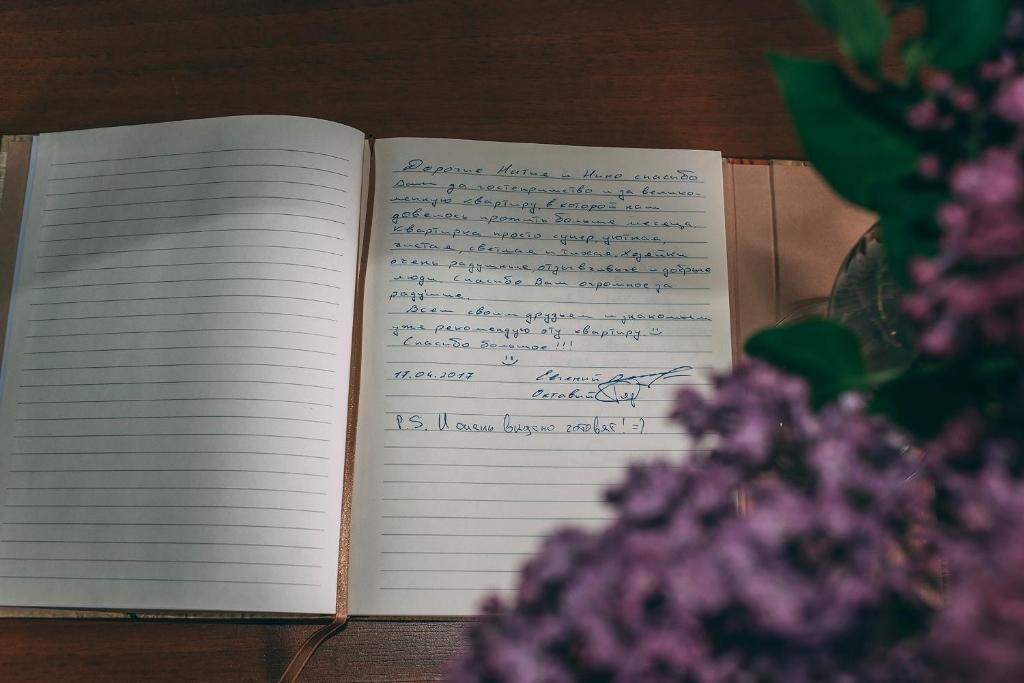 Дорогие Натия и Нино спасибо
Вам за гостеприимство и за велико-
лепную квартиру в которой нам
довелось прожить больше месяца.
Квартирка просто супер, уютная,
чистая, светлая и тихая. Хозяйки
очень радушные, отзывчивые и добрые
люди. Спасибо Вам огромное за
радушие.
Всем своим друзьям и знакомым
уже рекомендую эту квартиру
Спасибо большое!!!
17.04.2017 Евгений
Октавий
P.S. И очень вкусно готовят! =)